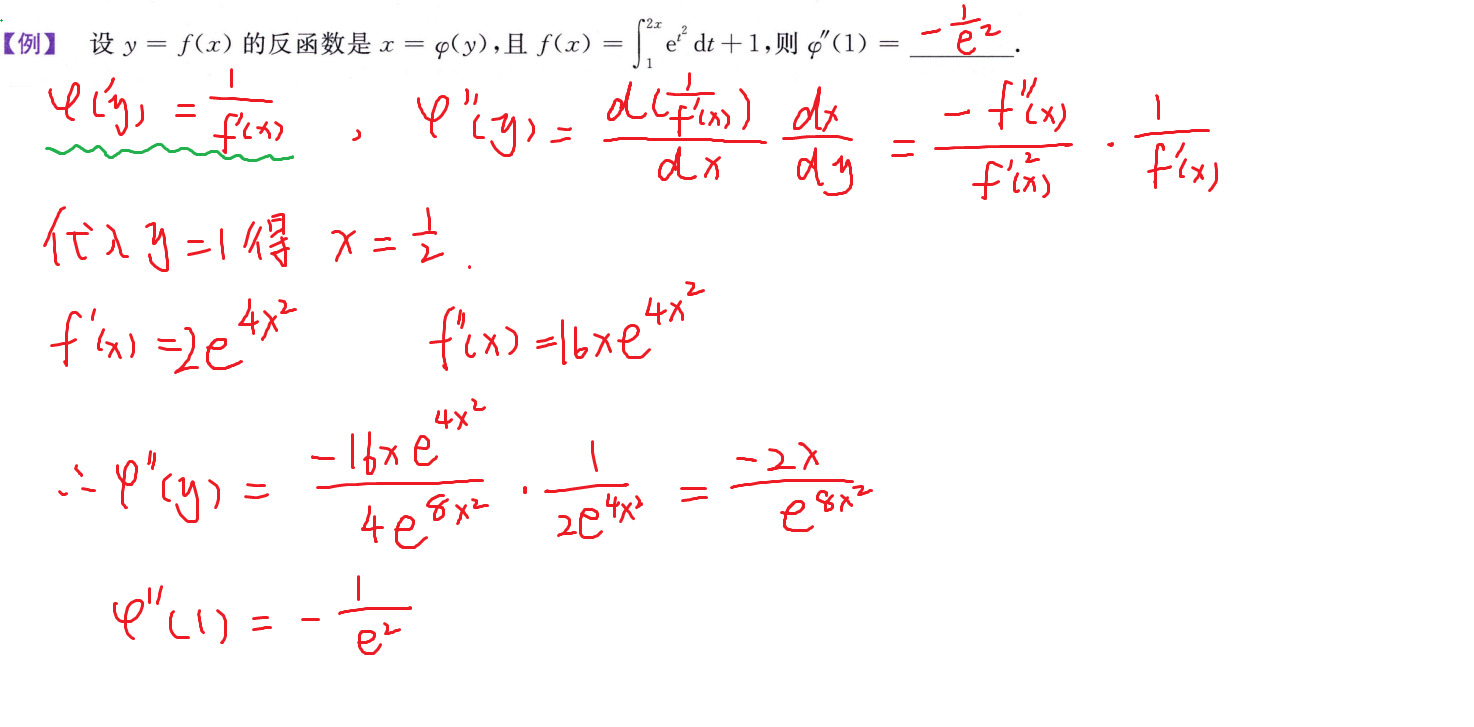 【例】 设 y = f(x) 的反函数是 x = φ(y),且 f(x) = ∫₁²ˣ e^{t²} dt + 1,则 φ″(1) = -1/e² .
φ′(y) = 1/f′(x) , φ″(y) = d(1/f′(x))/dx dx/dy = -f″(x)/f′²(x) · 1/f′(x)
代入 y = 1 得 x = 1/2 .
f′(x) = 2e^{4x²} f″(x) = 16xe^{4x²}
∴ φ″(y) = -16xe^{4x²}/4e^{8x²} · 1/2e^{4x²} = -2x/e^{8x²}
φ″(1) = - 1/e²